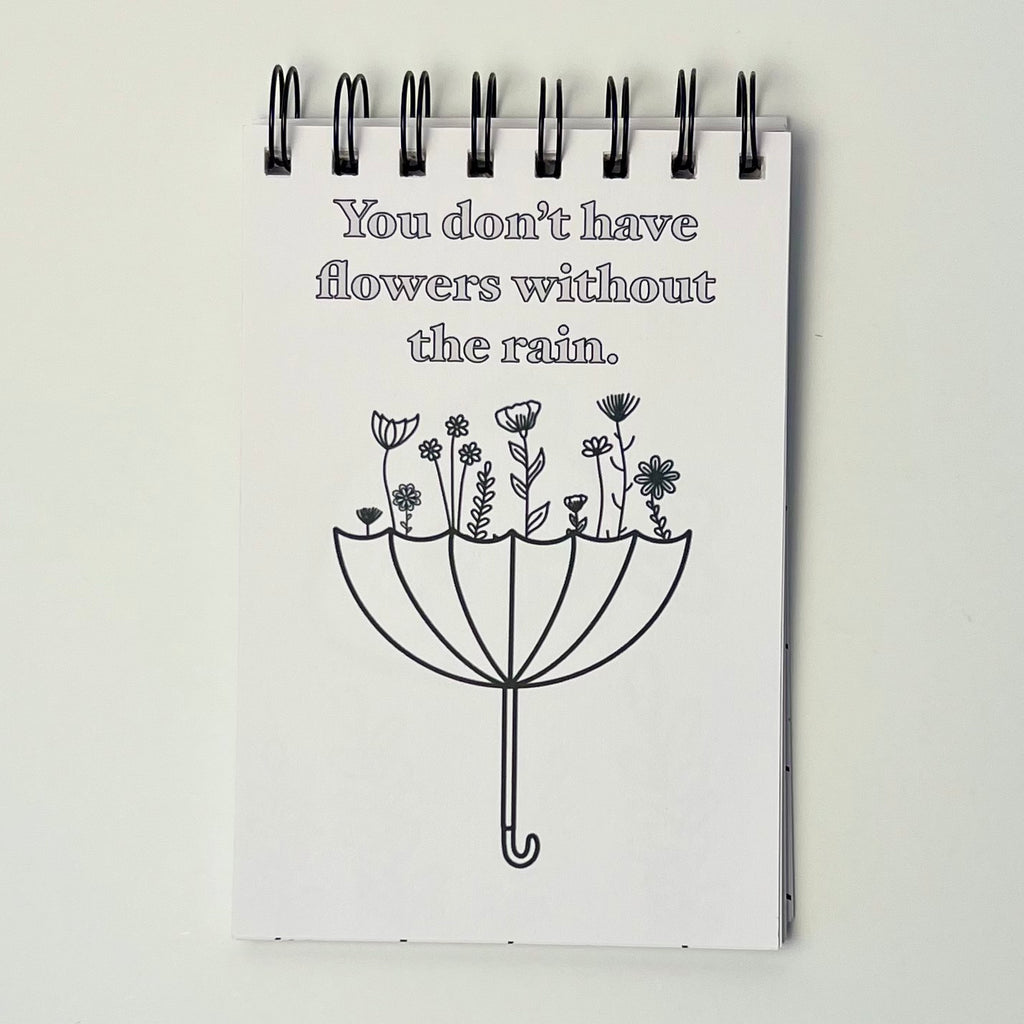 You don’t have
flowers without
the rain.